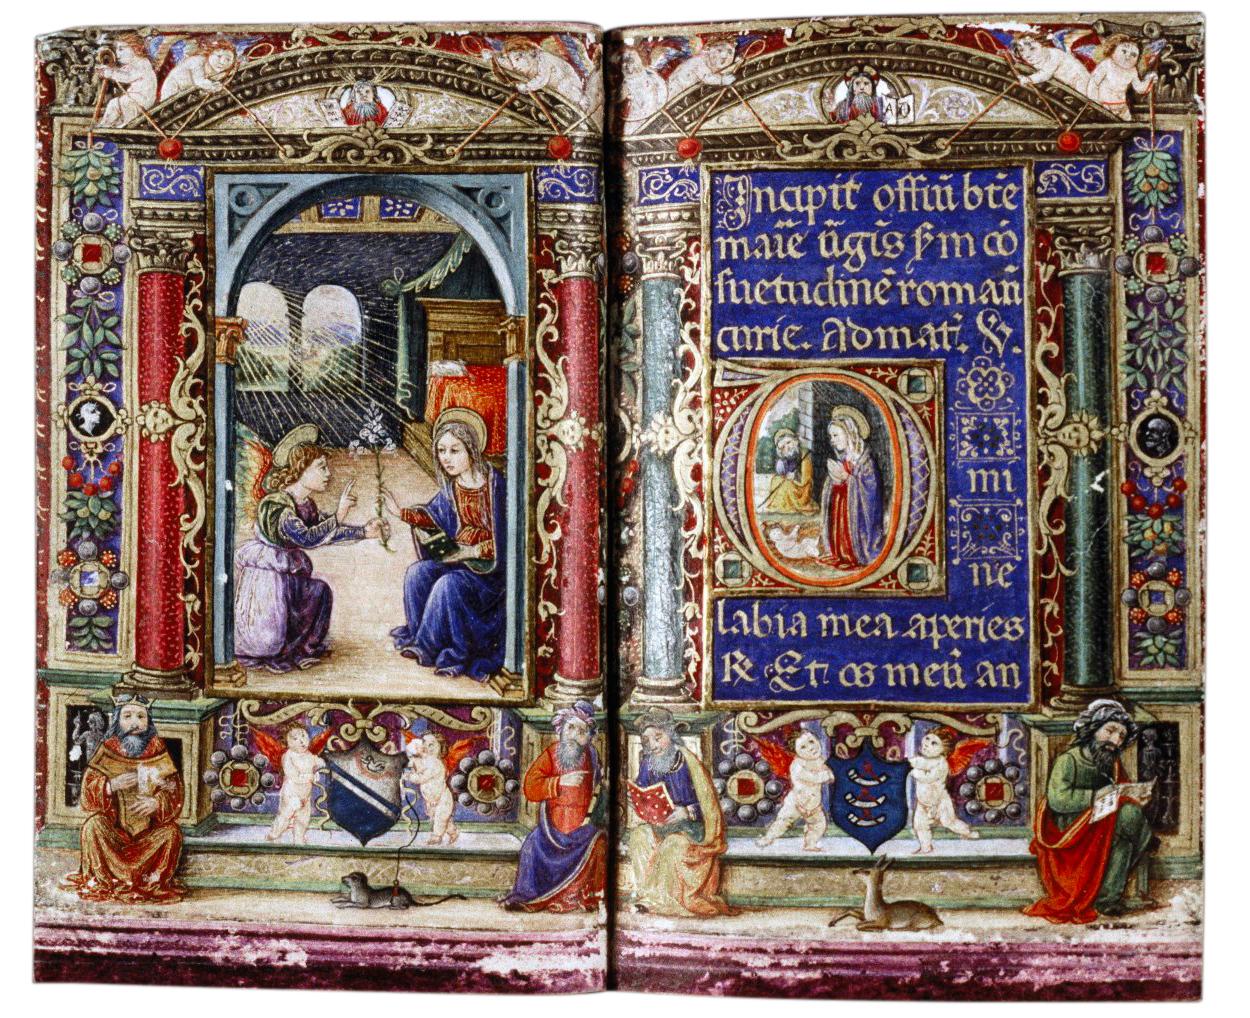 Incipit offiũ btẽ
maiẽ ũgiŝ ẜm cõ
ſuetudinẽ roman̄
curie. Ad mat̃. V̷.
D
mi
ne
labia mea aperies
R̷ Et os meũ an